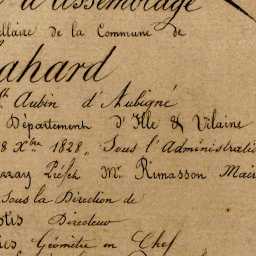 d'assemblage
ellaire de la Commune de
ahard
Aubin d'Aubigné
Département d'Ille & Vilaine
8 Xbre 1828, Sous l'Administrati
rray Préfet, Mr Rimasson Mair
Sous la Direction de
Directeur
Géomètre en Chef